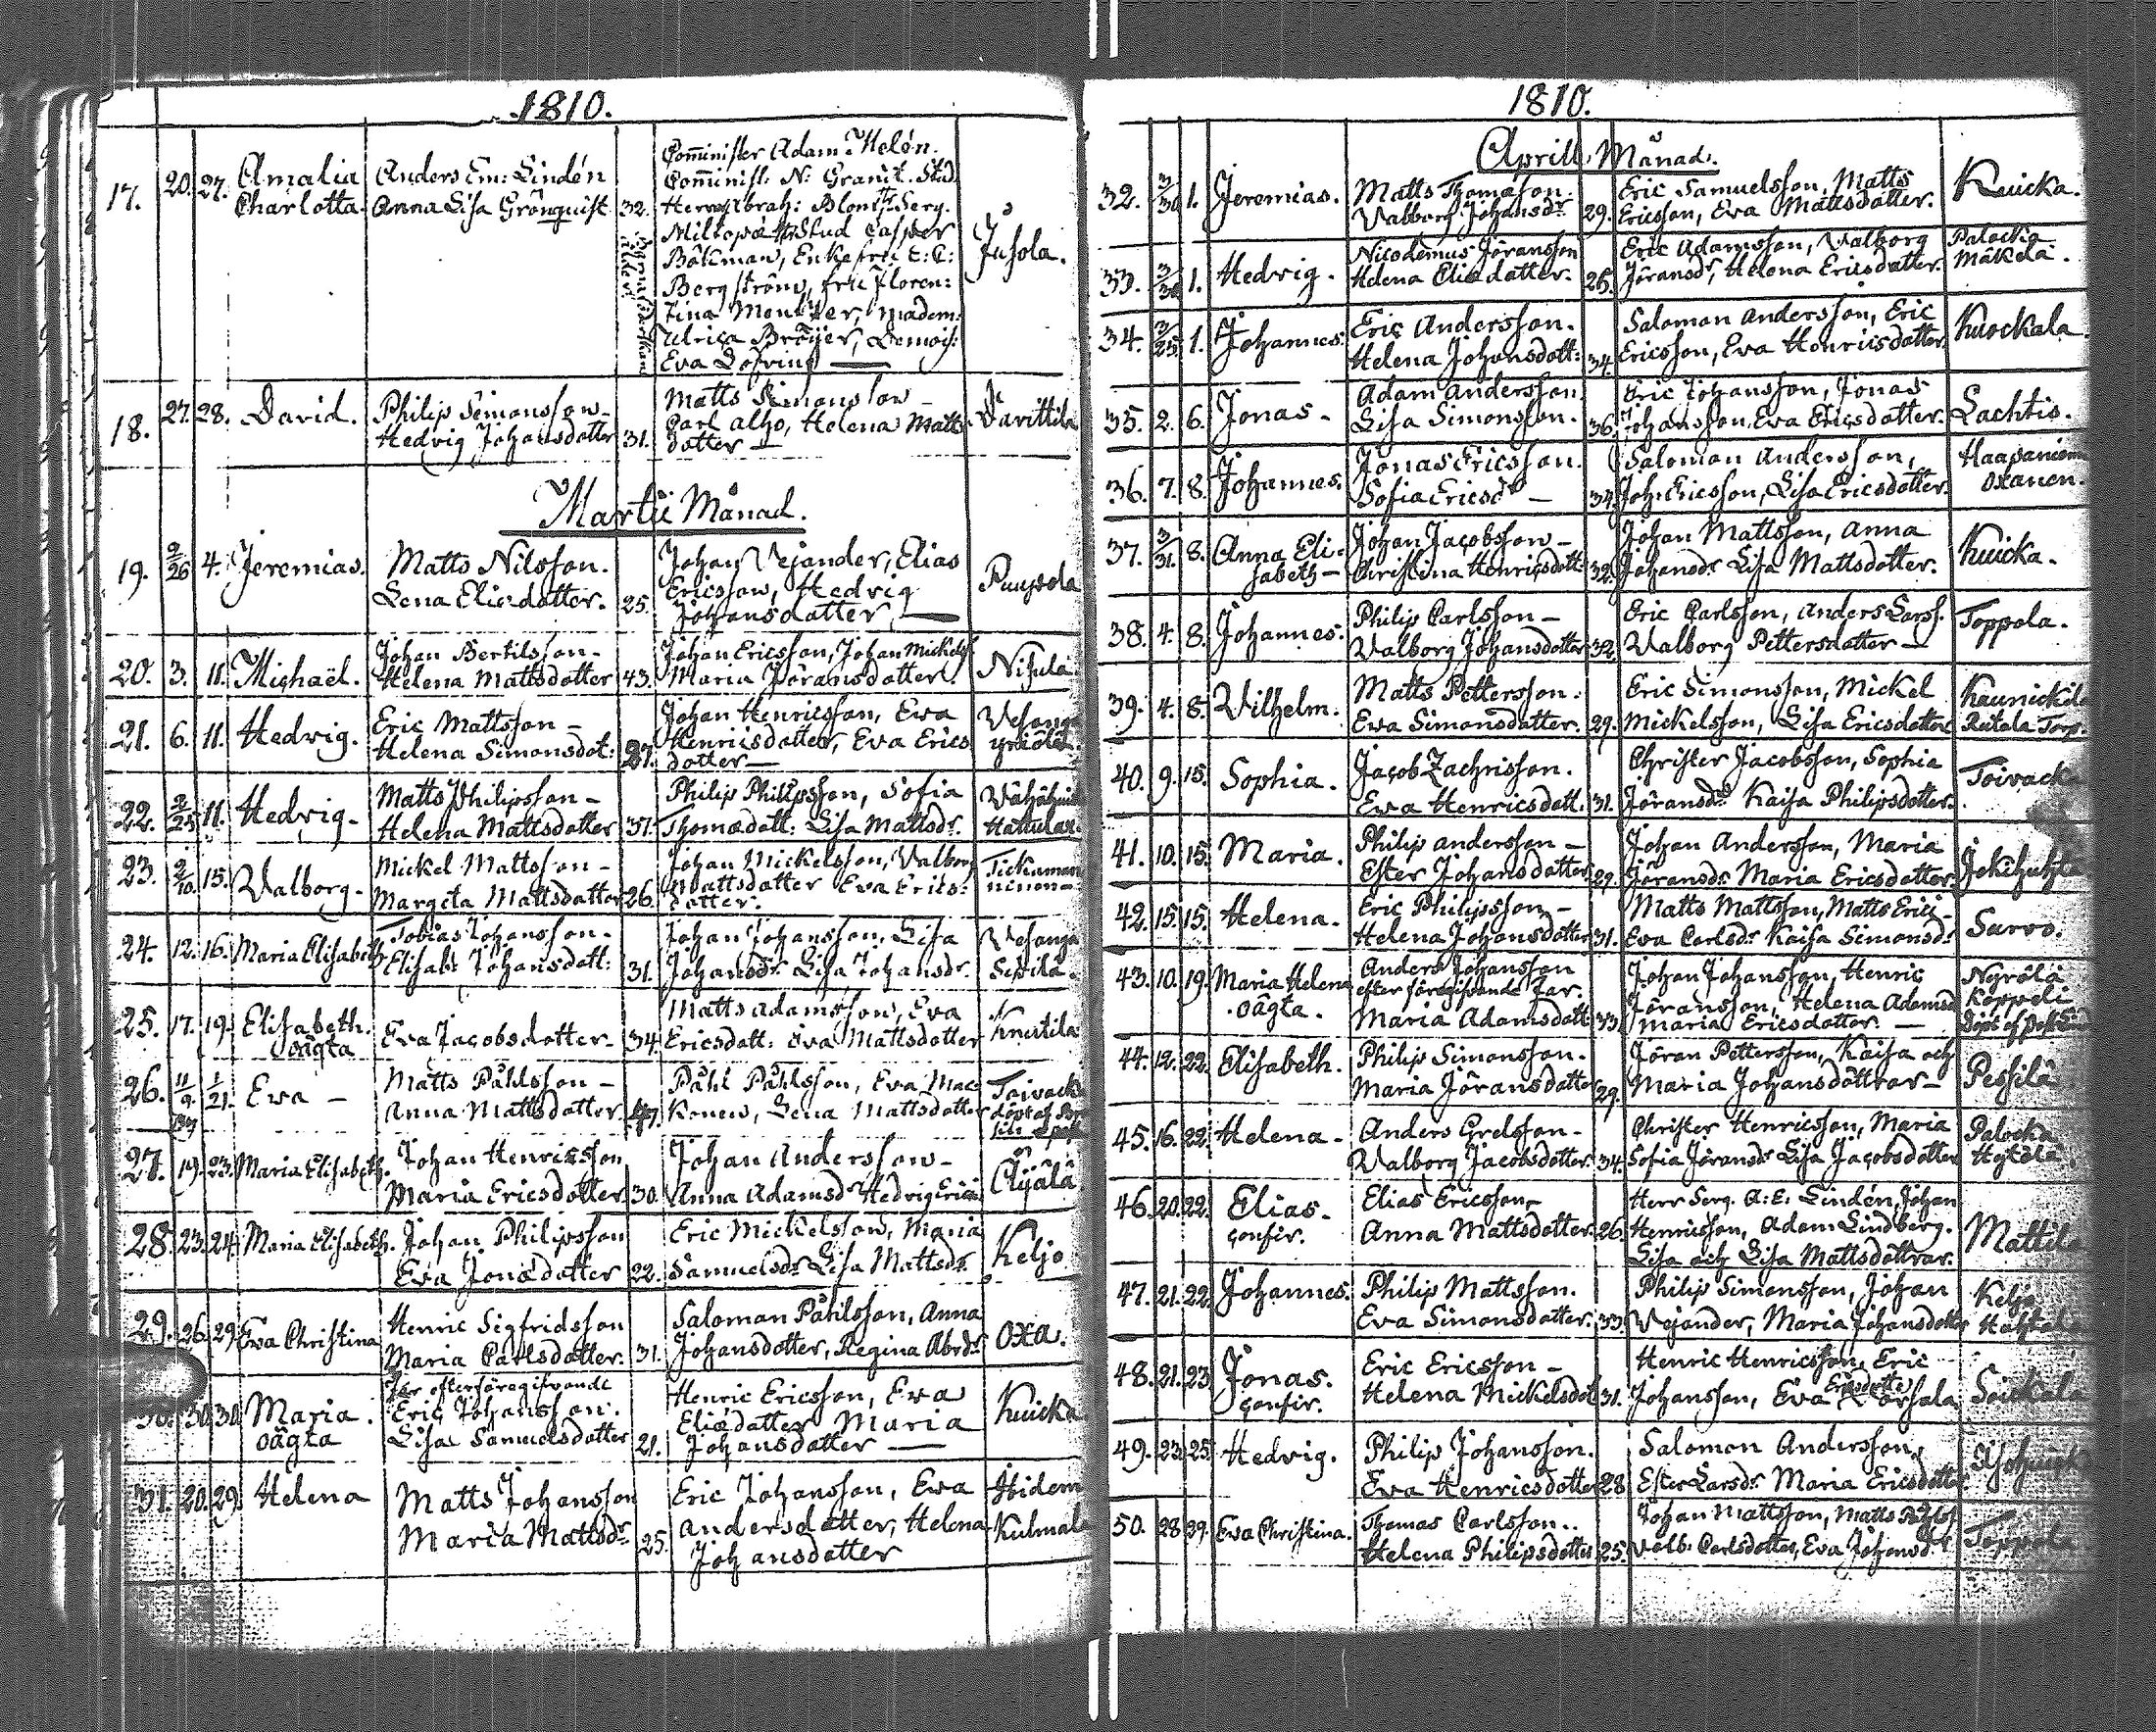 1810.
17. 20. 27. Amalia Charlotta. Anders Em: Lindén
Anna Lisa Grönquist 32.
Comminister Adam Helén.
Comminist: N: Granit. Stud.
Herr Abrah: Blom Serg.
Stud Casper
Bökman, Enkefru C: C:
Bergström, fru Floren:
tina Madem:
Ulrica Bröijer, Demois:
Eva Dofring —
Jusola.
18. 27. 28. David. Philip Simonsson –
Hedvig Johansdotter 31.
Matts Simonsson –
Carl Alho, Helena Matts
dotter –
Martii Månad.
19. 2/26 4. Jeremias. Matts Nilsson.
Lena Eliædotter. 25.
Johan Vejander, Elias
Ericsson, Hedvig
Johansdotter, —
Puupola
20. 3. 11. Michaël. Johan Bertilsson –
Helena Mattsdotter 43.
Johan Ericsson, Johan Mickels
Maria Göransdotter.
Nisula
21. 6. 11. Hedvig. Eric Mattsson –
Helena Simonsdot: 27.
Johan Henricsson, Eva
Henricsdotter, Eva Erics
dotter —
Vesanga
22. 2/25 11. Hedvig – Matts Philipsson –
Helena Mattsdotter 37.
Philip Philipsson, Sofia
Thomædott: Lisa Mattsdr.
23. 2/10 15. Valborg – Mickel Mattsson –
Margeta Mattsdotter 26.
Johan Mickelsson, Valborg
Mattsdotter Eva Erics:
dotter.
24. 12. 16. Maria Elisabeth Tobias Johansson –
Elisab: Johansdott: 31.
Johan Johansson, Lisa
Johansdr. Lisa Johansdr.
Vesanga
Sepilä.
25. 17. 19. Elisabeth.
oägta
Eva Jacobsdotter – 34.
Matts Adamsson, Eva
Ericsdott: Eva Mattsdotter
Knutila
26. 11/9 1/21. Eva – Matts Påhlsson –
Anna Mattsdotter. 47.
Påhl Påhlsson, Eva Mac
konen, Lena Mattsdotter
Toivack
27. 19. 23. Maria Elisabeth. Johan Henricsson
Maria Ericsdotter 30.
Johan Andersson –
Anna Adamsdr Hedvig Erics
28. 23. 24. Maria Elisabeth. Johan Philipsson
Eva Jonædotter 22.
Eric Mickelsson, Maria
Samuelsdr. Lisa Mattsdr.
Keljo
29. 26. 29. Eva Christina Henric Sigfridsson
Maria Carlsdotter. 31.
Salomon Påhlsson, Anna
Johansdotter, Regina Abrdr.
Oxa.
30. 30. 30. Maria.
oägta
Far efterföregifvande
Eric Johansson.
Lisa Samuelsdotter 21.
Henric Ericsson, Eva
Eliædotter Maria
Johansdotter —
Kuicka
31. 20. 29. Helena Matts Johansson
Maria Mattsdr. 25.
Eric Johansson, Eva
Andersdotter, Helena
Johansdotter
Ibidem
Kulmala
1810.
Aprill Månad.
32. 3/30 1. Jeremias. Matts Thomasson.
Valborg Johansdr. 29.
Eric Samuelsson, Matts
Ericsson, Eva Mattsdotter.
Kuicka.
33. 3/30 1. Hedvig. Nicodemus Jöransson
Helena Eliædotter. 25.
Eric Adamsson, Valborg
Jöransdr, Helena Ericsdotter.
Palocka
Mäkelä.
34. 3/25 1. Johannes. Eric Andersson.
Helena Johansdott: 34.
Salomon Andersson, Eric
Ericsson, Eva Henricsdotter
Kuockala.
35. 2. 6. Jonas – Adam Andersson.
Lisa Simonsson. 36.
Eric Johansson, Jonas
Johansson, Eva Ericsdotter.
Lachtis.
36. 7. 8. Johannes. Jonas Ericsson.
Sofia Ericsdr – 34.
Salomon Andersson,
Joh: Ericsson, Lisa Ericsdotter.
Haapaniemi
Oxanen.
37. 3/31. 8. Anna Eli-
sabeth –
Johan Jacobsson –
Christina Henricsdott: 32.
Johan Mattsson, Anna
Johansdr. Lisa Mattsdotter.
Kuicka.
38. 4. 8. Johannes. Philip Carlsson –
Valborg Johansdotter 32.
Eric Carlsson, Anders Larss.
Valborg Pettersdotter —
Toppola.
39. 4. 8. Vilhelm. Matts Pettersson.
Eva Simonsdotter. 29.
Eric Simonsson, Mickel
Mickelsson, Lisa Ericsdotter
Torp.
40. 9. 15. Sophia. Jacob Zachrisson.
Eva Henricsdott. 31.
Christer Jacobsson, Sophia
Jöransdr. Kaisa Philipsdotter.
Toivack
41. 10. 15. Maria. Philip Andersson –
Ester Johansdotter. 29.
Johan Andersson, Maria
Jöransdr. Maria Ericsdotter.
42. 15. 15. Helena. Eric Philipsson –
Helena Johansdotter 31.
Matts Mattsson, Matts Erici –
Eva Carlsdr. Kaisa Simonsdr.
Sarvo.
43. 10. 19. Maria Helena
oägta.
Anders Johansson
efter föregifvande far.
Maria Adamsdott. 33.
Johan Johansson, Henric
Jöransson, Helena Adamsd
Maria Ericsdotter. —
Nyrölä
Koppeli
44. 12. 22. Elisabeth. Philip Simonsson.
Maria Jöransdotter 29.
Jöran Pettersson, Kaisa och
Maria Johansdöttrar –
Pessilä
45. 16. 22. Helena – Anders Grelsson –
Valborg Jacobsdotter. 34.
Christer Henricsson, Maria
Sofia Jöransdr Lisa Jacobsdotter
Palocka
46. 20. 22. Elias.
confir.
Elias Ericsson –
Anna Mattsdotter. 26.
Herr Serg. A: E: Lindén, Johan
Henricsson, Adam Lindberg.
Lisa och Lisa Mattsdöttrar.
Mattila
47. 21. 22. Johannes. Philip Mattsson.
Eva Simonsdotter. 33.
Philip Simonsson, Johan
Vejander, Maria Johansdotter
Keljo
48. 21. 23. Jonas.
confir.
Eric Ericsson –
Helena Mickelsdot 31.
Henric Henricsson, Eric
Johansson, Eva Ericsdotter
49. 23. 25. Hedvig. Philip Johansson.
Eva Henricsdotter 28.
Salomon Andersson,
Ester Larsdr. Maria Ericsdotter.
50. 28. 29. Eva Christina. Thomas Carlsson.
Helena Philipsdotter 25.
Johan Mattsson, Matts
Valb: Carlsdotter, Eva Johansd
Toppola